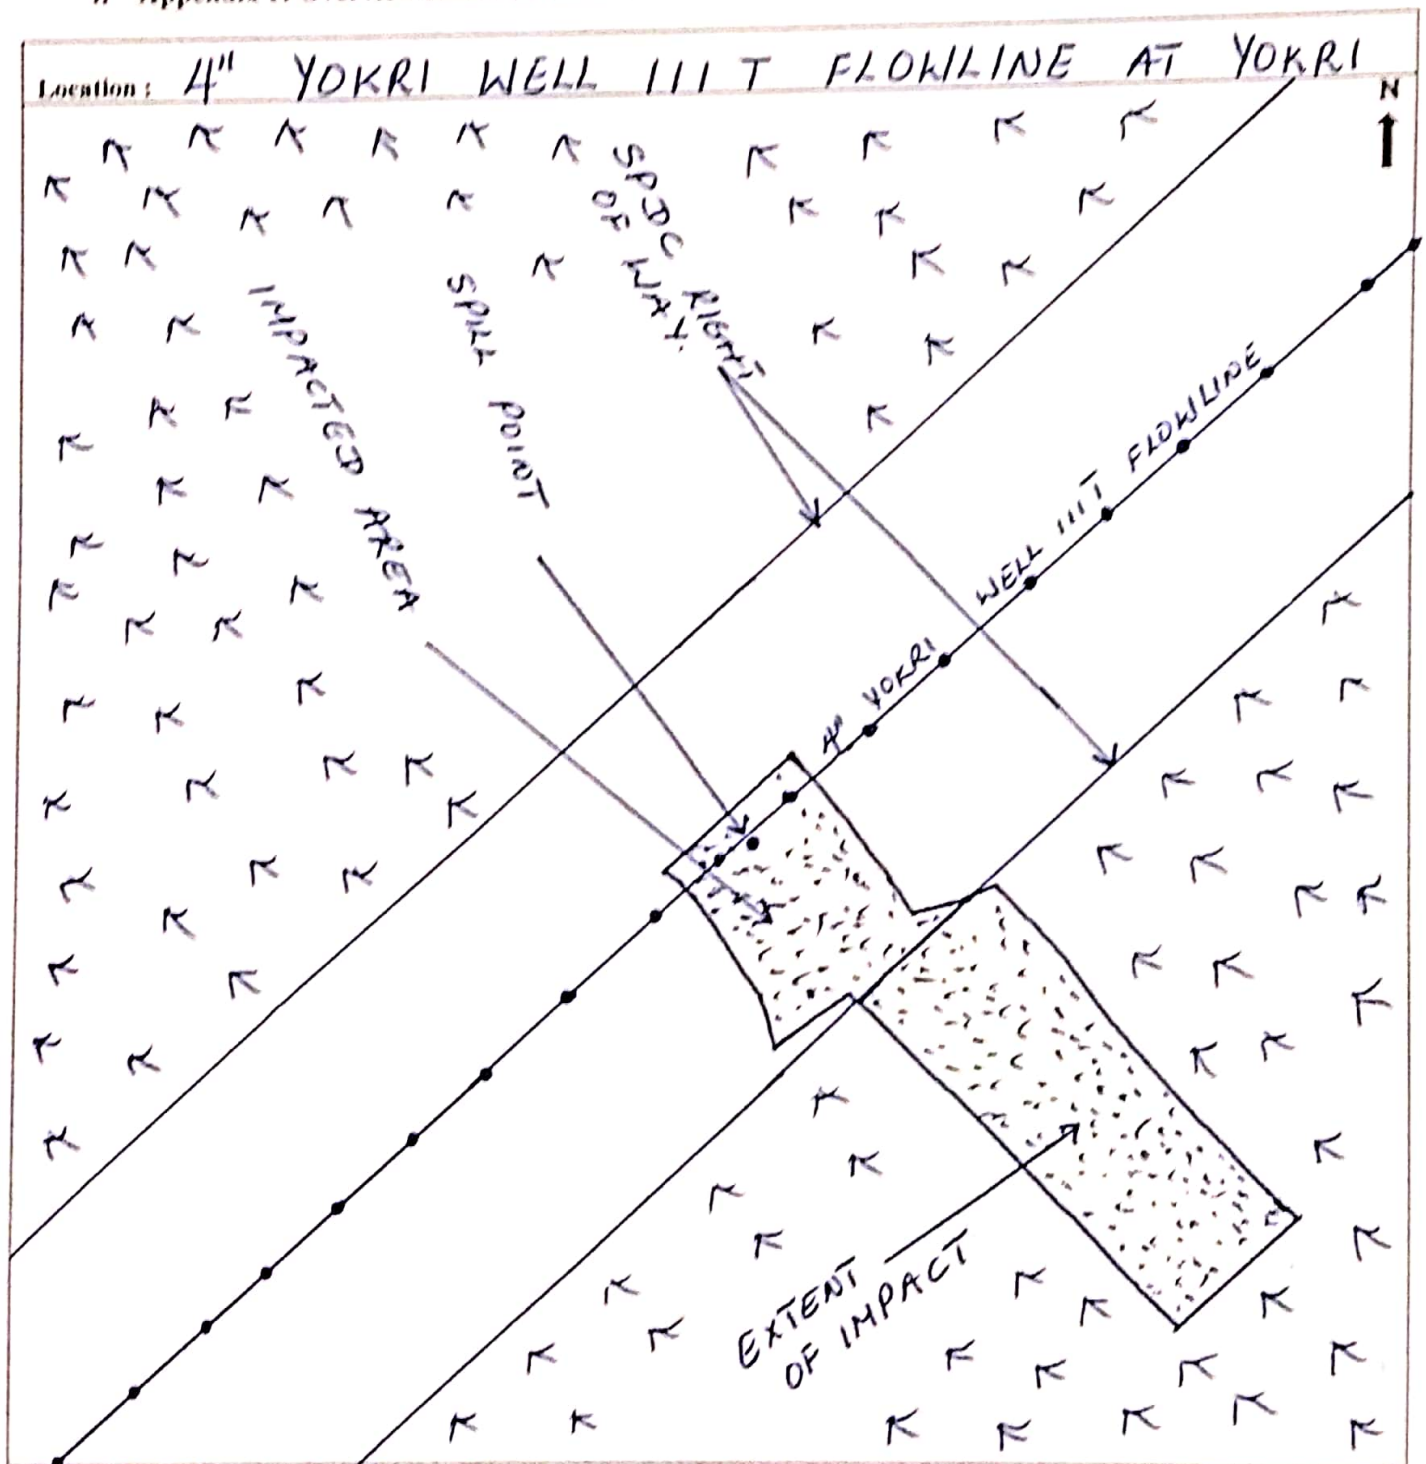 Location : 4" YOKRI WELL III T FLOWLINE AT YOKRI
N
SPDC RIGHT
OF WAY.
SPILL POINT
IMPACTED AREA
4" YOKRI WELL IIIT FLOWLINE
EXTENT
OF IMPACT